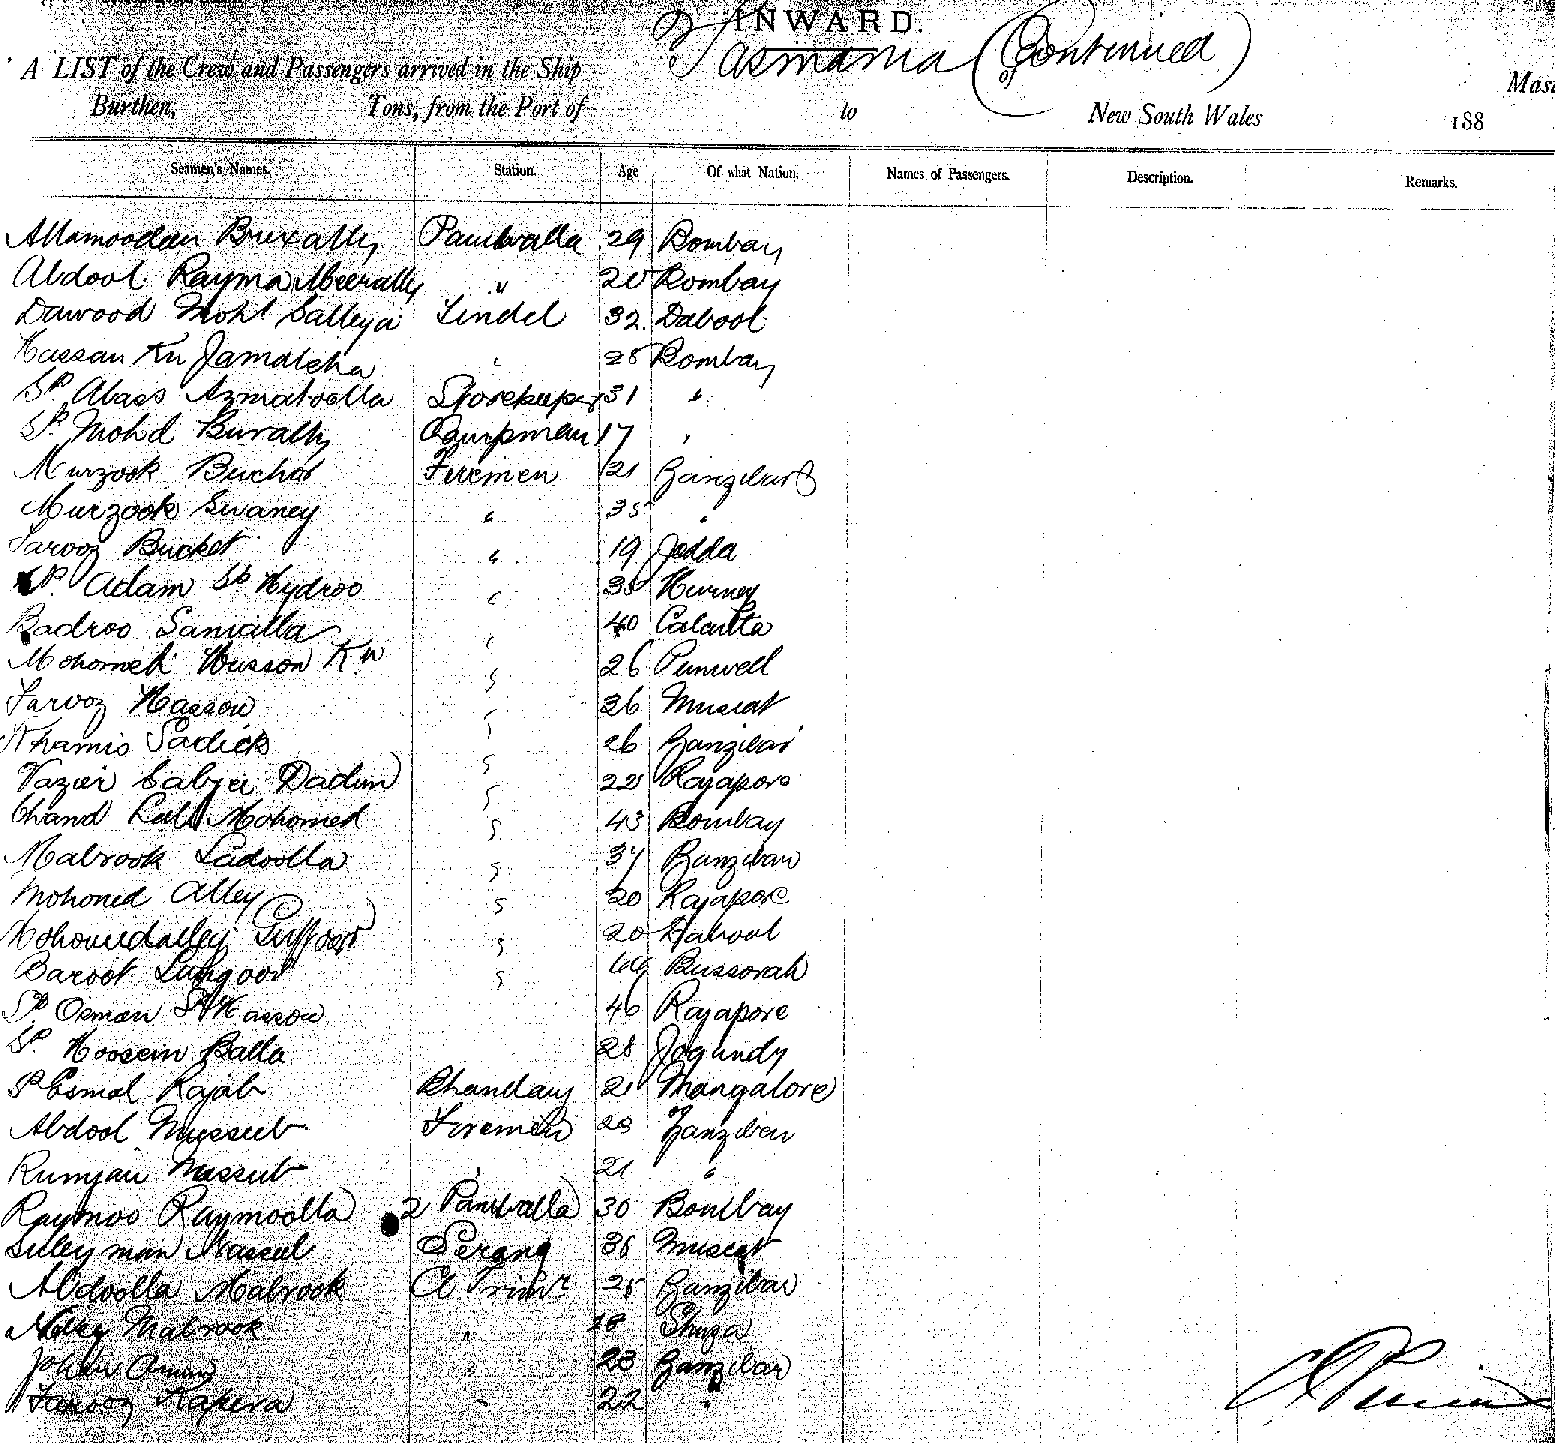 INWARD.
Tasmania (Continued)
A LIST of the Crew and Passengers arrived in the Ship of Mast
Burthen, Tons, from the Port of to New South Wales 188
Seamen's Names. Station. Age Of what Nation. Names of Passengers. Description. Remarks.
Allamooden Buxally Paniwalla 29 Bombay
Abdool Rayma Meerally " Bombay
Dawood Mohd Salleya Tindel 32 Dabool
Hassan Kn Jamalcha Bombay
Sk. Abass Azmatoolla Storekeeper 31 "
Sk. Mohd Burally 17 "
Murzook Buchot Firemen 21 Zanzibar
Murzook Swaney " 35 "
Farooz Bucket " 19 Jedda
Sk. Adam Sk Hydroo " Hurney
Badroo Samalla " 40 Calcutta
Mahomed Husson Kn " 26 Punwell
Farooz Hasson " 26 Muscat
Khamis Sadick " 26 Zanzibar
Vazier " Rajapore
Chand Lall Mohomed " 43 Bombay
Mabrook Sadoolla " 37 Zanzibar
Mohomed Alley " 20 Rajapore
Mohomedalley Guffoor " 20 Dabool
Baroot " Bussorah
Sk Osman Sk Hasson 46 Rajapore
Sk. Hoosein Balla 28
Sk Esmal Rajab Bhandary 21 Mangalore
Abdool Mussub Firemen Zanzibar
Rumjan Nassub " 21 "
Raymoo Raymoolla 2 Paniwalla 30 Bombay
Suleyman Serang Muscat
Abdoolla Mabrook C Trimr 25 Zanzibar
Mabrook "
" 23 Zanzibar
Farooz " 22 "